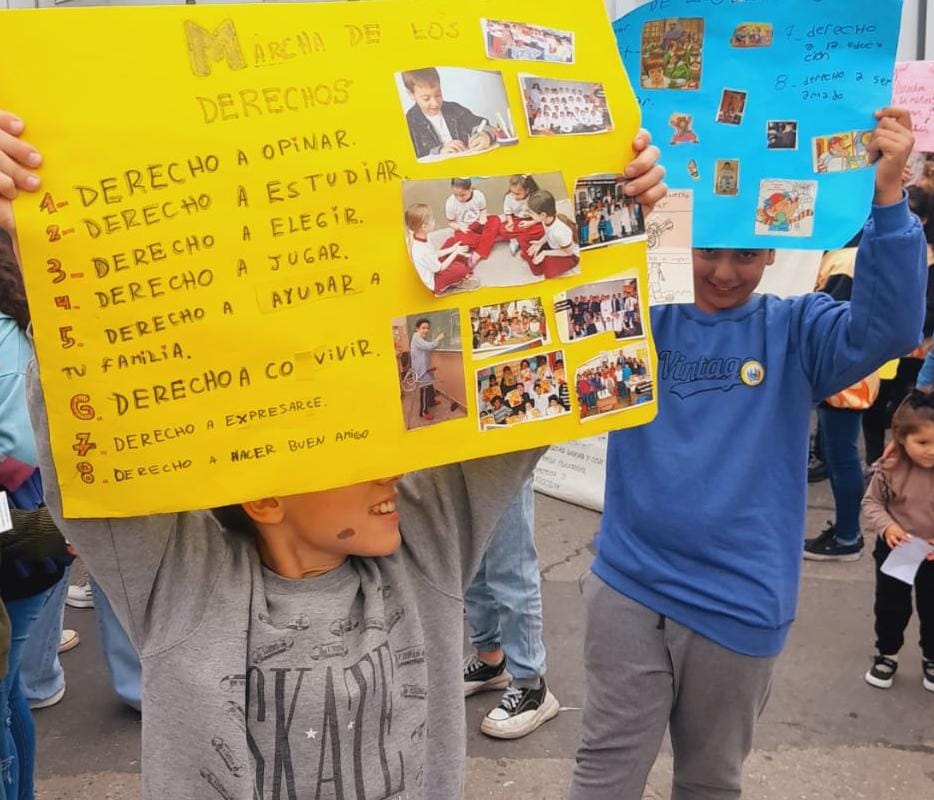 MARCHA DE LOS
DERECHOS
1- DERECHO A OPINAR.
2- DERECHO A ESTUDIAR.
3- DERECHO A ELEGIR.
4. DERECHO A JUGAR.
5. DERECHO A AYUDAR A
TU FAMILIA.
6. DERECHO A CO VIVIR.
7. DERECHO A EXPRESARCE.
8. DERECHO A HACER BUEN AMIGO
7_ derecho
a la educa
ción
8_ derecho a ser
amado
Vintage
SKATE